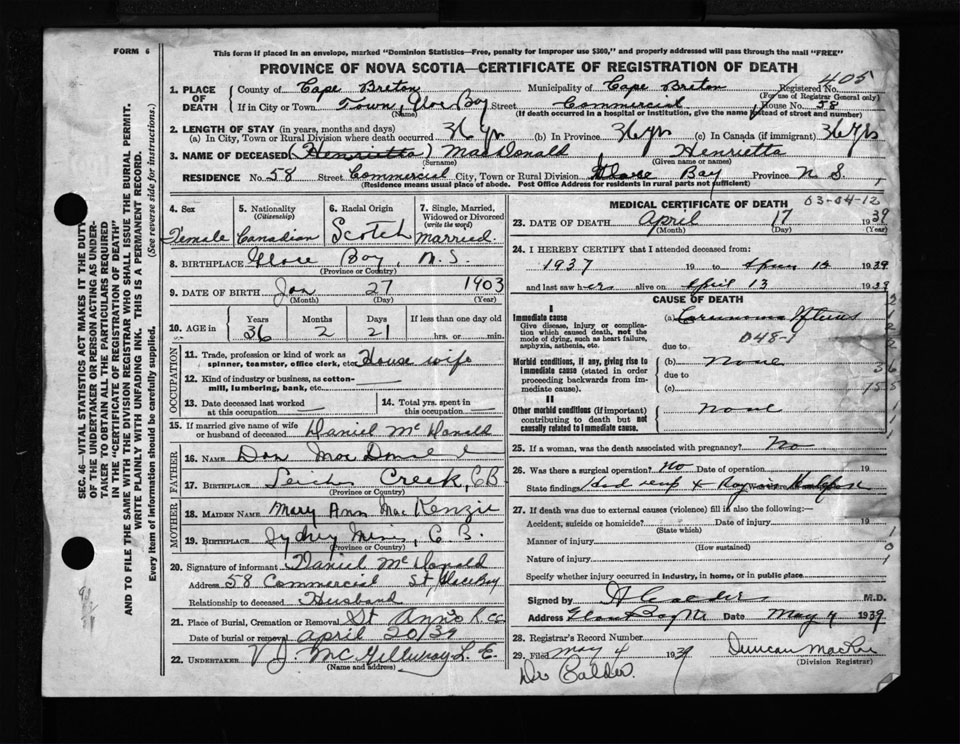 FORM 6
This form if placed in an envelope, marked "Dominion Statistics—Free, penalty for improper use $300," and properly addressed will pass through the mail "FREE"
PROVINCE OF NOVA SCOTIA—CERTIFICATE OF REGISTRATION OF DEATH
SEC. 46—VITAL STATISTICS ACT MAKES IT THE DUTY
OF THE UNDERTAKER OR PERSON ACTING AS UNDER-
TAKER TO OBTAIN ALL THE PARTICULARS REQUIRED
IN THE "CERTIFICATE OF REGISTRATION OF DEATH"
AND TO FILE THE SAME WITH THE DIVISION REGISTRAR WHO SHALL ISSUE THE BURIAL PERMIT.
WRITE PLAINLY WITH UNFADING INK. THIS IS A PERMANENT RECORD.
Every item of information should be carefully supplied. (See reverse side for instructions.)
405
1. PLACE OF DEATH County of Cape Breton Municipality of Cape Breton Registered No.
(For use of Registrar General only)
If in City or Town Town, Glace Bay Street Commercial House No. 58
(Name) (If death occurred in a hospital or institution, give the name instead of street and number)
2. LENGTH OF STAY (in years, months and days)
(a) In City, Town or Rural Division where death occurred 36 yr (b) In Province 36 yrs (c) In Canada (if immigrant) 36 yrs
3. NAME OF DECEASED (Henrietta) MacDonald Henrietta
(Surname) (Given name or names)
RESIDENCE No. 58 Street Commercial City, Town or Rural Division Glace Bay Province N. S.
(Residence means usual place of abode. Post Office Address for residents in rural parts not sufficient)
4. Sex Female
5. Nationality (Citizenship) Canadian
6. Racial Origin Scotch
7. Single, Married, Widowed or Divorced (write the word) Married
8. BIRTHPLACE Glace Bay, N. S.
(Province or Country)
9. DATE OF BIRTH Jan 27 1903
(Month) (Day) (Year)
10. AGE in Years Months Days If less than one day old
36 2 21 hrs. or min.
OCCUPATION
11. Trade, profession or kind of work as spinner, teamster, office clerk, etc. House wife
12. Kind of industry or business, as cotton-mill, lumbering, bank, etc. —
13. Date deceased last worked at this occupation —
14. Total yrs. spent in this occupation —
15. If married give name of wife or husband of deceased Daniel McDonald
FATHER
16. NAME Dan MacDonald
17. BIRTHPLACE Creek, C B
(Province or Country)
MOTHER
18. MAIDEN NAME Mary Ann MacKenzie
19. BIRTHPLACE Sydney Mines, C. B.
(Province or Country)
20. Signature of informant Daniel McDonald
Address 58 Commercial St, Glace Bay
Relationship to deceased Husband
21. Place of Burial, Cremation or Removal St Ann's
Date of burial or removal April 20/39
22. UNDERTAKER V J. McGillivray
(Name and address)
MEDICAL CERTIFICATE OF DEATH 03-04-12
23. DATE OF DEATH April 17 1939
(Month) (Day) (Year)
24. I HEREBY CERTIFY that I attended deceased from:
1937 19 to April 13 1939
and last saw her alive on April 13 1939
CAUSE OF DEATH
I
Immediate cause
Give disease, injury or complication which caused death, not the mode of dying, such as heart failure, asphyxia, asthenia, etc.
(a) Carcinoma of uterus
due to D48-1
Morbid conditions, if any, giving rise to immediate cause (stated in order proceeding backwards from immediate cause).
(b) None
due to
(c)
II
Other morbid conditions (if important) contributing to death but not causally related to immediate cause.
None
25. If a woman, was the death associated with pregnancy? No
26. Was there a surgical operation? No Date of operation 19
State findings Had
27. If death was due to external causes (violence) fill in also the following:—
Accident, suicide or homicide? Date of injury 19
(State which)
Manner of injury
(How sustained)
Nature of injury
Specify whether injury occurred in industry, in home, or in public place
Signed by A Calder M.D.
Address Glace Bay Date May 4 1939
28. Registrar's Record Number
29. Filed May 4 1939 Duncan MacRae
(Division Registrar)
Dr Calder.